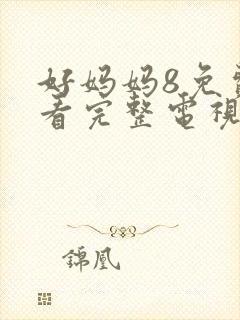 好妈妈8免费
看完整電視
錦凰